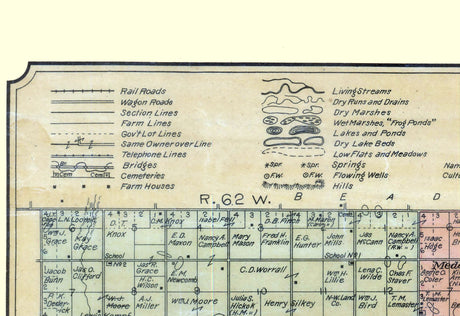 Rail Roads
Wagon Roads
Section Lines
Farm Lines
Gov't Lot Lines
Same Owner over Line
Telephone Lines
Bridges
Cemeteries
Farm Houses
Cem
Living Streams
Dry Runs and Drains
Dry Marshes
Wet Marshes, "Frog Ponds"
Lakes and Ponds
Dry Lake Beds
Low Flats and Meadows
Springs
Flowing Wells
Hills
Spr.
Spr.
F.W.
F.W.
R. 62 W.
B E A D
L.N. Loomis
D. T. Knox
C.M. Knox
Kay Grace
W.J. Grace
E.D. Mavon
Nancy A. Campbell
Mary Mason
Fred H. Franklin
E.G. Hunter
John Mills
Jas McCann
Nancy A. Campbell
(R.W.=)
Isaac
School No 2
School No 1
Jacob Bunn
Jas. O. Clifford
Jas. R. Grace
H.C. Wilson
E.M. Newcomb
C.D. Worrall
Wm H. Lillie
Lena C. Wilde
Chas F. Staver
R. K.
W. J. Moore
A.J. Miller
W. J. Moore
Julia S. Hickok
(H.M.=)
Henry Silkey
N-W Land Co
Wm J. Bird
L. T. M. Lemaster